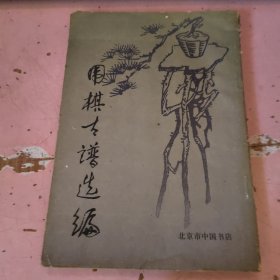 围棋古谱选编
北京市中国书店